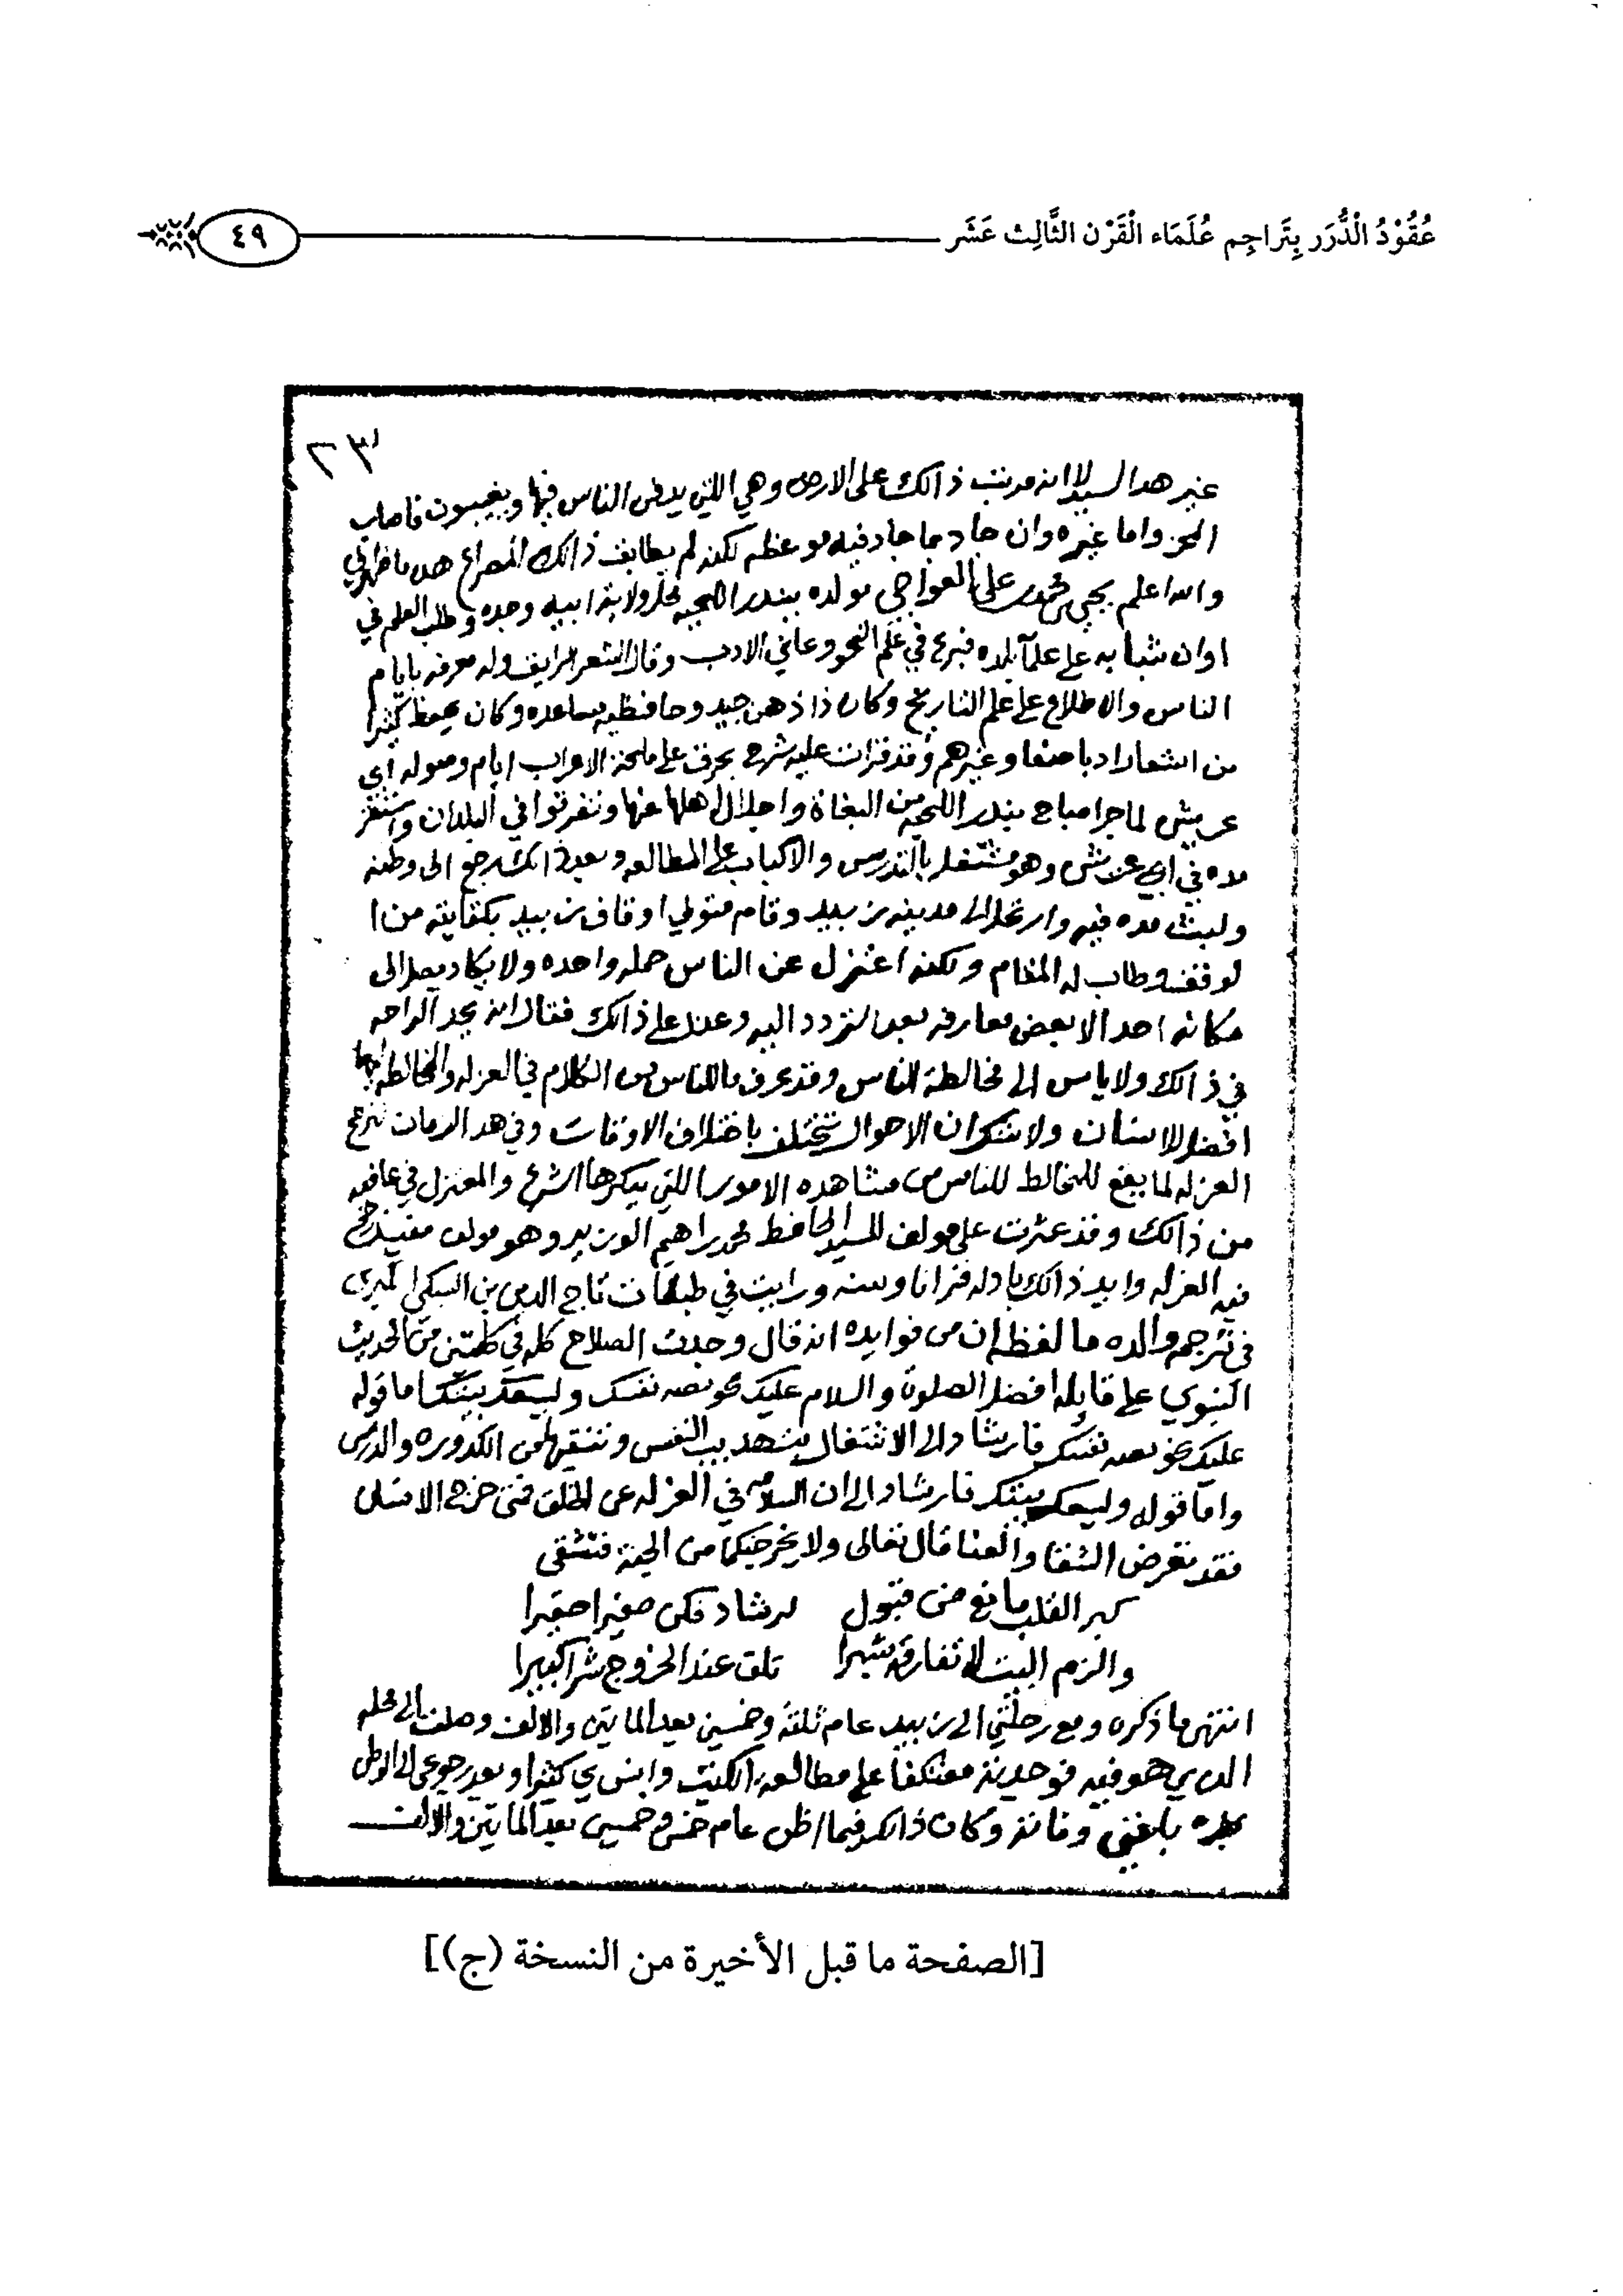 عُقُوْدُ الْدُّرَر بِتَرَاجِم عُلَمَاء الْقَرْن الثَّالِث عَشَر
٤٩
٢٣
غير هذا السيد لانه مدينت ذالك على الارض وهي اللتي يدفن الناس فيها ويغيبون فاصاب
المحز واما غيره وان جاد بما جاد فيه موعظه لكنه لم يطابق ذالك المصراع هذا ما ظهر لي
والله اعلم يحيى بن محمد بن علي العواجي مولده ببندر اللحيه محل ولاية ابيه وجده وطلب العلم في
اوان شبابه على علمآ بلده فبرع في علم النحو وعاني الادب وقال الشعر الرايق وله معرفه بايام
الناس والاطلاع على علم التاريخ وكان ذا ذهن جيد وحافظيه مساعده وكان يحفظ كثيرا
من اشعار ادبا صنعا وغيرهم وقد قرات عليه شرح بحرق على ملحة الاعراب ايام وصوله ابي
عريش لما جرا صباح بندر اللحيه من البغاة واجلال اهلها عنها وتفرقوا في البلدان واستقر
مده في ابي عريش وهو مشتغل بالتدريس والاكباب على المطالعه وبعد ذالك رجع الى وطنه
ولبث مده فيه وارتحل الى مدينه زبيد وقام متولي اوقاف زبيد بكفايته من ا
لوقف وطاب له المقام ولكنه اعتزل عن الناس جمله واحده ولا يكاد يصل الى
مكانه احد الا بعض معارفه بعد التردد اليه وعذل على ذالك فقال انه يجد الراحه
في ذالك ولا ياس الى مخالطة الناس وقد عرف ما للناس من الكلام في العزله والمخالطه ايها
افضل للانسان ولا شك ان الاحوال تختلف باختلاف الاوقات وفي هذا الزمان تترجح
العزله لما يقع للمخالط للناس من مشاهده الامور اللتي ينكرها الشرع والمعتزل في عافيه
من ذالك وقد عثرت على مولف للسيد الحافظ محمد براهيم الوزير وهو مولف مفيد رجح
فيه العزله وايد ذالك بادله قرانا وسنه ورايت في طبقات تاج الدين بن السبكي الكبرى
في ترجمه والده ما لفظه ان من فوايده انه قال وجدت الصلاح كله في كلمتين من الحديث
النبوي على قايله افضل الصلوة والسلام عليك بخويصه نفسك وليسعك بيتك اما قوله
عليك بخويصه نفسك فارشاد الى الاشتغال بتهذيب النفس وتنقيتها من الكدوره والدنس
واما قوله وليسعك بيتك فارشاد الى ان السلامه في العزله عن الخلق فمتى خرج الانسان
فقد تعرض الشقا والعنا قال تعالى ولا يخرجنكما من الجنة فتشقى
كبر القلب مانع من قبول لرشاد فكن صغيرا حقيرا
والزم البيت لا تفارقه شبرا تلق عند الخروج شرا كبيرا
انتهى ما ذكره ومع رحلتي الى زبيد عام ثلثة وخمسين بعد الماتين والالف وصلت الى محله
الذي هو فيه فوجدته معتكفا على مطالعه الكتب وانس بي كثيرا وبعد رجوعي الى الوطن
بلغني وفاته وكان ذالك فيما اظن عام خمس وخمسين بعد الماتين والالف
[الصفحة ما قبل الأخيرة من النسخة (ج)]